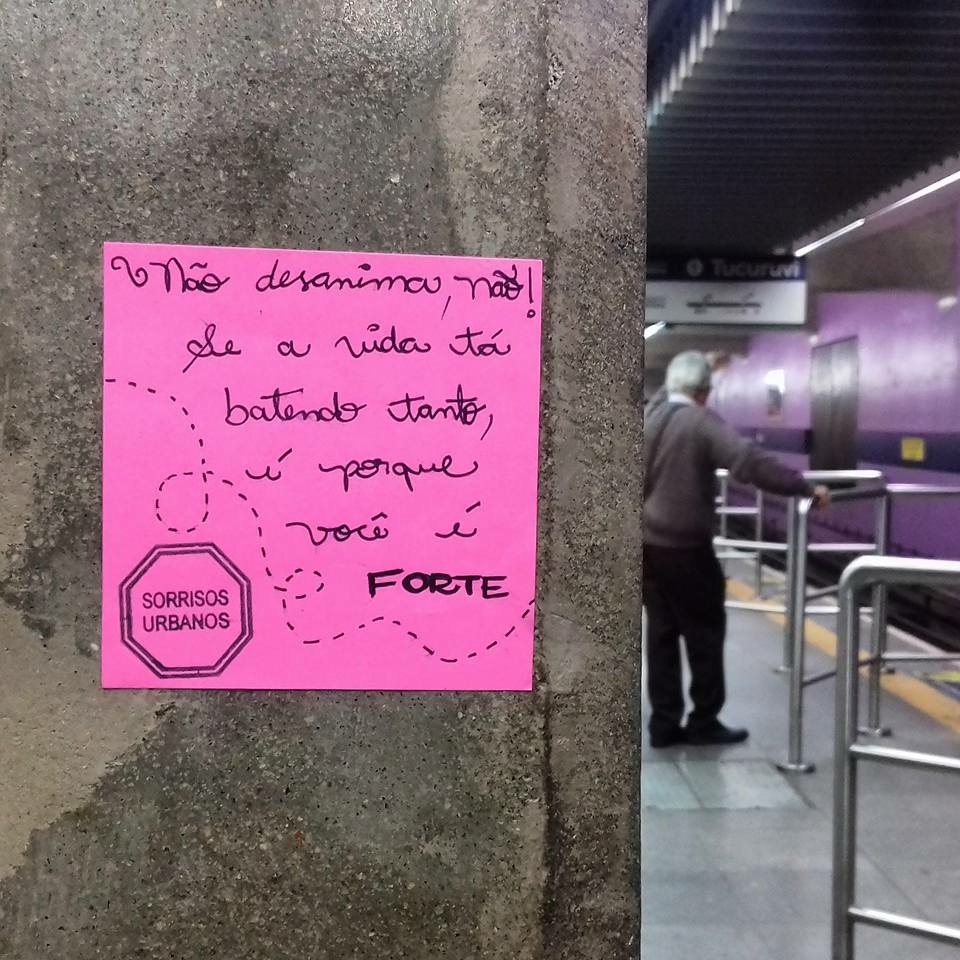 Não desanima, não!
Se a vida tá
batendo tanto,
é porque
você é
FORTE
SORRISOS
URBANOS
Tucuruvi